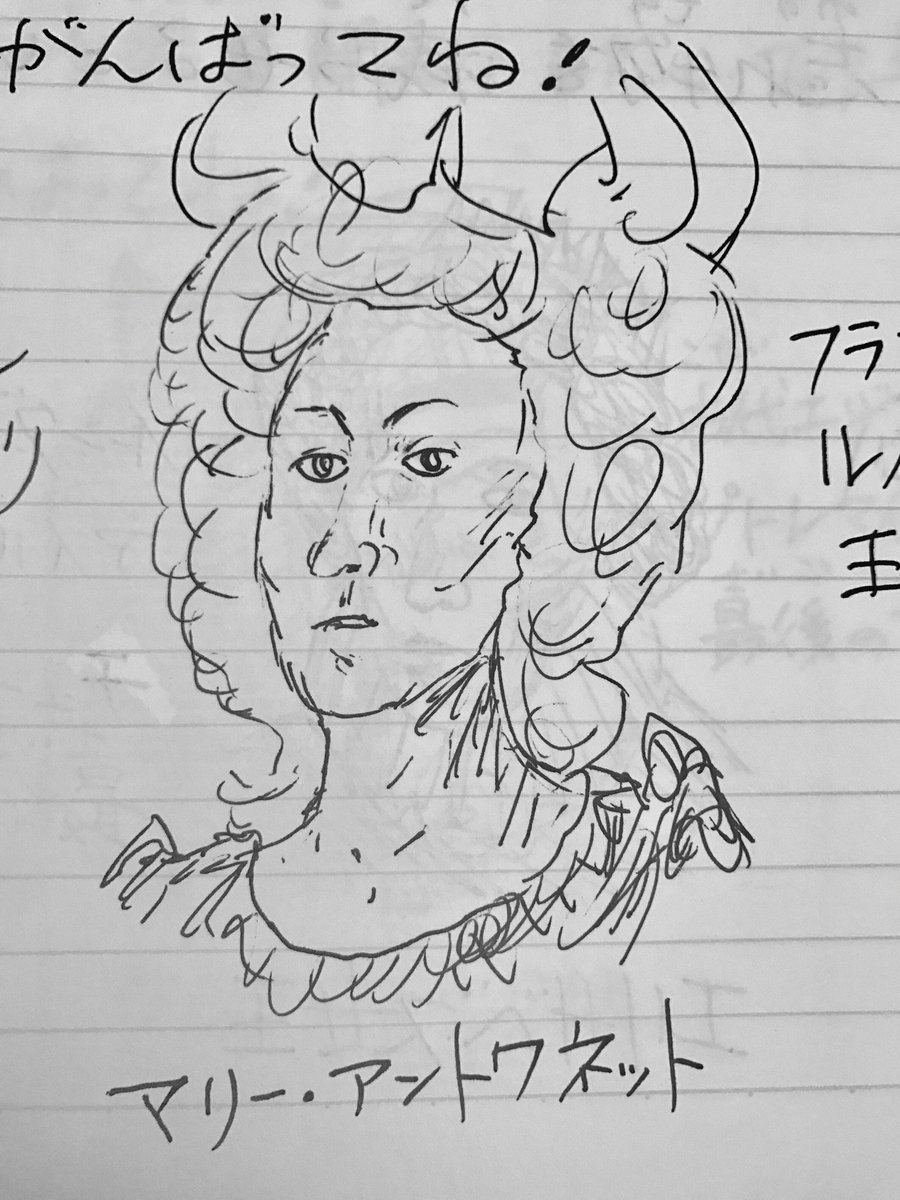 がんばってね!
フラ
ル
王
リ
マリー・アントワネット